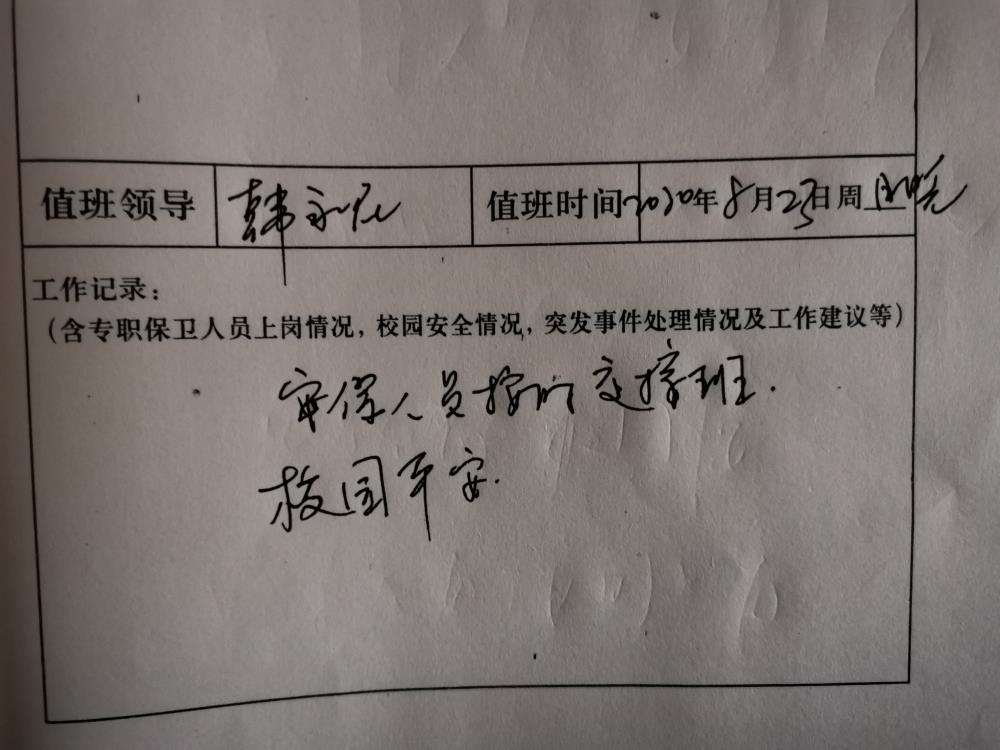 值班领导 韩永 值班时间 2020年8月25日周四晚
工作记录：
（含专职保卫人员上岗情况，校园安全情况，突发事件处理情况及工作建议等）
安保人员按时交接班.
校园平安.